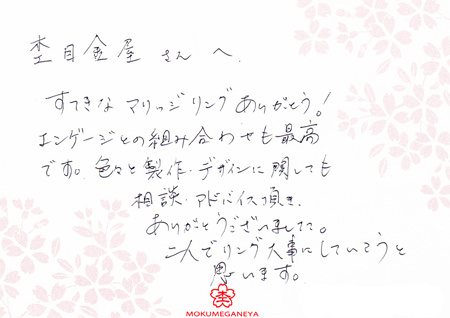 杢目金屋さんへ
すてきなマリッジリングありがとう！
エンゲージとの組み合わせも最高
です。色々と製作・デザインに関しても
相談・アドバイス頂き、
ありがとうございました。
二人でリング大事にしていこうと
思います。
MOKUMEGANEYA